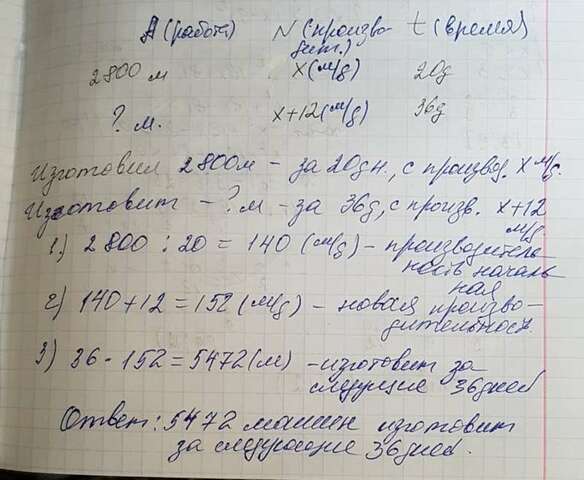 A (работа) N (произво- t (время)
дит.)
2800 м x (м/д) 20д
? м. x+12 (м/д) 36д
Изготовил 2800м – за 20дн., с произвд. x м/д.
Изготовит – ? м – за 36д, с произв. x+12
м/д.
1) 2800 : 20 = 140 (м/д) – производитель-
ность началь
ная
2) 140 + 12 = 152 (м/д) – новая произво-
дительност.
3) 36 · 152 = 5472 (м) – изготовит за
следущие 36дней
Ответ: 5472 машин изготовит
за следующие 36дней.